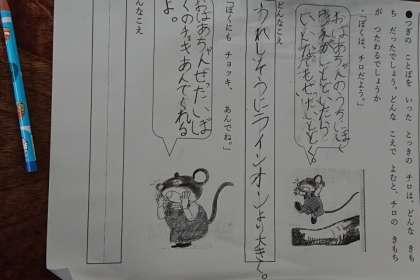 ●つぎの ことばを いった ときの チロは、どんな きも
ち だったでしょう。どんな こえで よむと、チロの きもち
が つたわるでしょうか
「ぼくは、チロだよう。」
おばあちゃんのうちにぼく
こえがとどいたら
いいな。でもぜったいとどく。
どんなこえ
うれしそうにラインオンより大きく。
「ぼくにも チョッキ、 あんでね。」
おばあちゃんぜったい、ぼ
くのチョキあんでくれる
よ。
んなこえ